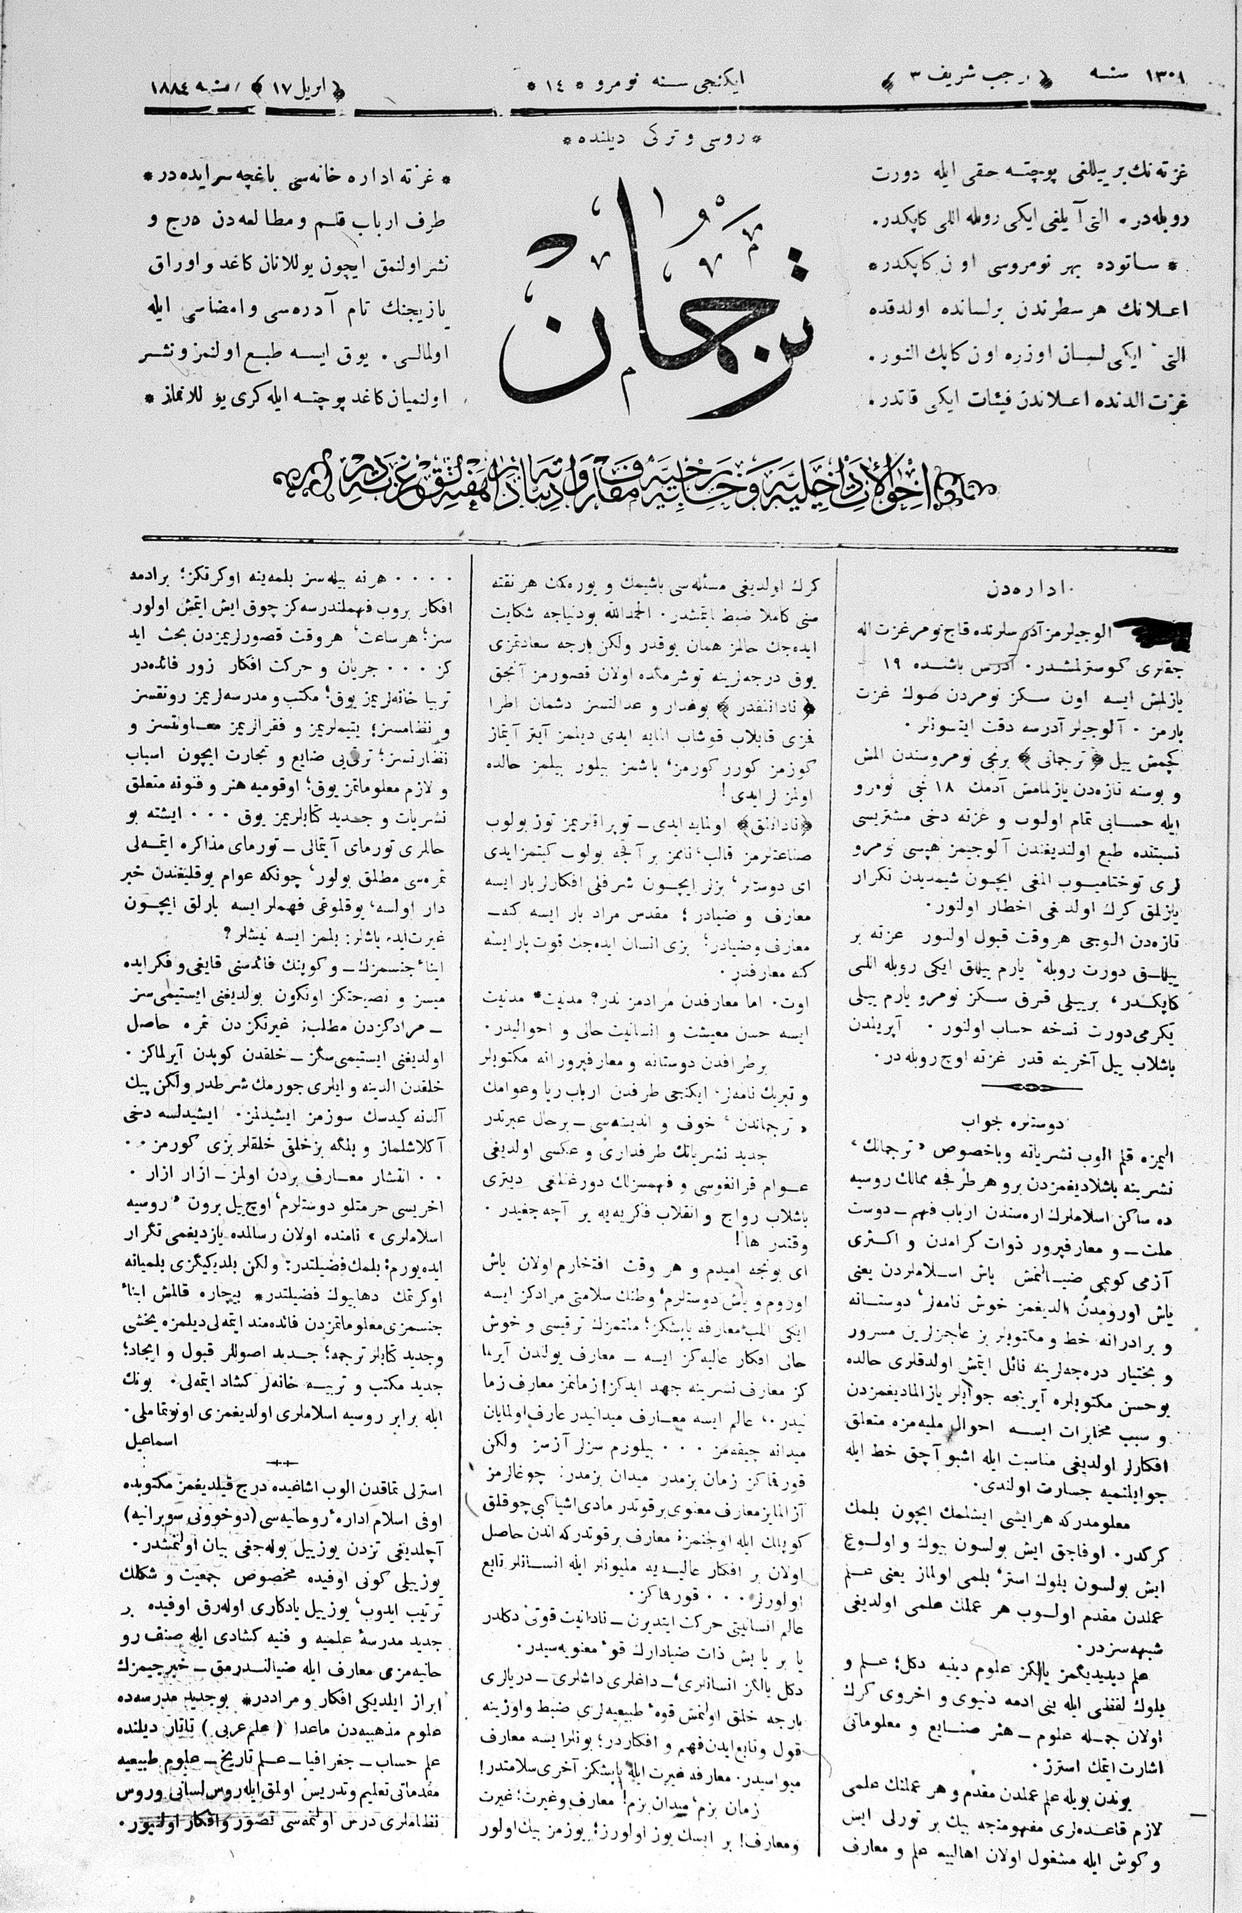 سنه ١٣٠١
﴿ رجب شريف ٣ ﴾
ايكنجی سنه نومرو * ١٤ *
﴿ اپريل ١٧ ﴾ سنه ١٨٨٤
* روسی و تركی ديلنده *
غزته نك بر ييللغی پوچته حقی ايله دورت
روبله در. التی آيلغی ايكی روبله اللی كاپكدر.
* ساتوده بهر نومروسی اون كاپكدر *
اعلانك هر سطرندن بر لسانده اولدقده
التی، ايكی لسان اوزره اون كاپك النور.
غزت الدنده اعلاندن فيئات ايكی قاتدر.
ترجمان
* غزته اداره خانه سی باغچه سرايده در *
طرف ارباب قلم و مطالعه دن درج و
نشر اولنمق ايچون يوللانان كاغد و اوراق
يازيجينك تام آدره سی و امضاسی ايله
اولمالی. يوق ايسه طبع اولنمز و نشر
اولنميان كاغد پوچته ايله كری يوللانماز *
اداره دن
الوجيلرمز آدرسلرنده قاچ نومر غزت اله
جقلری كوسترلمشدر. آدرس باشنده ١٩
يازلمش ايسه اون سكز نومردن صوك غزت
بارمز. آلوجيلر آدرسه دقت ايتسونلر.
كچمش ييل ﴿ ترجمانی ﴾ برنجی نومروسندن المش
و بوسنه تازه دن يازلمامش آدمك ١٨ نجی نومرو
ايله حسابی تمام اولوب و غزته دخی مشتريسی
نسبتنده طبع اولنديغندن آلوجيمز هپسی نومرو
لری توختاميوب المغی ايچون شيمديدن تكرار
يازلمق كرك اولدغی اخطار اولنور.
تازه دن الوجی هر وقت قبول اولنور غزته بر
ييللق دورت روبله، يارم ييللق ايكی روبله اللی
كاپكدر، بر ييلی قرق سكز نومرو يارم ييلی
يكرمی دورت نسخه حساب اولنور. آپريلدن
باشلاب ييل آخرينه قدر غزته اوچ روبله در.
دوستلره جواب
اليمزه قلم الوب نشرياته و باخصوص «ترجمانك»
نشرينه باشلاديغمزدن برو هر طرفجه ممالك روسيه
ده ساكن اسلاملرك اره سندن ارباب فهم ــ دوست
ملت ــ و معارفپرور ذوات كرامدن و اكثری
آزمی كوبمی ضيالنمش ياش اسلاملردن يعنی
ياش اورومدن الديغمز خوش نامه لر، دوستانه
و برادرانه خط و مكتوبلر بز عاجزلرين مسرور
و بختيار دره جه لرينه نائل ايتمش اولدقلری حالده
بو حسن مكتوبلره آيريجه جوابلر يازالماديغمزدن
و سبب مخابرات ايسه احوال مليه مزه متعلق
افكارلر اولديغی مناسبت ايله اشبو آچق خط ايله
جوابلنميه جسارت اولندی.
معلومدركه هر ايشی ايشلمك ايچون بلمك
كركدر. اوفاجق ايش بولسون بيوك و اولوغ
ايش بولسون بلوك استر، بلمی اولماز يعنی علم
عملدن مقدم اولوب هر عملك علمی اولديغی
شبهه سزدر.
علم ديديديگمز يالكز علوم دينيه دكل؛ علم و
بلوك لفظی ايله بنی ادمه دنيوی و اخروی كرك
اولان جمله علوم ــ هنر صنايع و معلوماتی
اشارت ايتمك استرز.
بوندن بويله علم عملدن مقدم و هر عملنك علمی
لازم قاعده لری مفهومنجه بيك بر تورلی ايش
و كوش ايله مشغول اولان اهالييه علم و معارف
كرك اولديغی مسئله سی باشيمك و يوره كمك هر نقته
سنی كاملا ضبط ايتمشدر. الحمدالله بودنياجه شكايت
ايده جك حالمز همان يوقدر ولكن بارجه سعادتمزی
يوق درجه لرينه توشرمكده اولان قصورمز آنجق
﴿ نادانلقدر ﴾ بو غدار و عدالتسز دشمان اطرا
فمزی قابلاب قوشاب
كوزمز كورر كورمز، باشمز بيلور بيلمز حالده
اولمز لر ايدی!
﴿ نادانلق ﴾ اولمايه ايدی ــ توپراقلريمز توز بولوب
ای دوستلر، بزلر ايچون شرفلی افكارلر بار ايسه
معارف و ضيادر؛ مقدس مراد بار ايسه كنه ــ
معارف و ضيادر؛ بزی انسان ايده جك قوت بار ايسه
كنه معارفدر.
اوت. اما معارفدن مرادمز ندر؟ مدنيت* مدنيت
ايسه حسن معيشت و انسانيت حالی و احواليدر.
بر طرافدن دوستانه و معارفپرورانه مكتوبلر
و تبريك نامه لر، ايكنجی طرفدن ارباب ريا و عوامك
«ترجماندن» خوف و انديشه سی ــ بر حال عبرتدر
جديد نشرياتك طرفداری و عكسی اولديغی
باشلاب رواج و انقلاب فكريه يه ير آچه جغيدر.
وقتدر ها!
ای بونجه اميدم و هر وقت افتخارم اولان ياش
اوروم و ياش دوستلرم، وطنك سلامتی مرادكز ايسه
ايكی اللب معارفه ياپشكز؛ ملتمزك ترقيسی و خوش
حالی افكار عاليه كز ايسه ــ معارف يولندن آيرلما
كز معارف نشرينه جهد ايدكز! زمانمز معارف زما
نيدر.، عالم ايسه معارف ميدانيدر عارف اولمايان
ميدانه چيقه مز ... بيلورم سزلر آزسز ولكن
قورقماكز زمان بزمدر ميدان بزمدر: چوغالرمز
آزالمايز معارف معنوی بر قوتدر مادی اشيا كبی چوقلق
كوپلك ايله اولچنمز؛ معارف بر قوتدر كه اندن حاصل
اولان بر افكار عاليه يه مليونلر ايله انسانلر تابع
اولورلر ... قورقماكز.
عالم انسانيتی حركت ايتديرن ــ نادانيت قوتی دكلدر
يا بر يا بش ذات ضيادارك قوۀ معنويه سيدر.
دكل يالكز انسانلری، ــ داغلری داشلری ــ دريالری
بارجه خلق اولنمش قوۀ طبيعيه لری ضبط و اوزينه
قول و تابع ايدن فهم و افكاردر؛ بونلر ايسه معارف
ميوه سيدر. معارفه غيرت ايله ياپشكز آخری سلامتدر!
زمان بزم، ميدان بزم! معارف و غيرت؛ غيرت
و معارف! بر ايسك يوز اولورز؛ يوزمز بيك اولور
.... هر نه بيله سز بلمه ينه اوكرتكز؛ بر ادمه
افكار بروب فهملندرسه كز چوق ايش ايتمش اولور
سز؛ هر ساعت، هر وقت قصورلريمزدن بحث ايد
كز ... جريان و حركت افكار زور فائده در
تربيا خانه لريمز يوق؛ مكتب و مدرسه لريمز رونقسز
و نظامسز؛ يتيملريمز و فقرالريمز معاونتسز و
نظارتسز؛ ترقیٔ صنايع و تجارت ايچون اسباب
و لازم معلوماتمز يوق؛ اوقوميه هنر و فنونه متعلق
نشريات و جديد كتابلريمز يوق ... ايشته بو
حاللری تورمای آيتمالی ــ تورمای مذاكره ايتمه لی
ثمره سی مطلق بولور، چونكه عوام يوقليغندن خبر
دار اولسه، يوقلوغی فهملر ايسه بارلق ايچون
غيرت ايده باشلر؛ بلمز ايسه نيشلر؟
ابناء جنسمزك ــ و كوپنك فائده سنی قايغی و فكر ايده
ميسز و نصيحتكز اوتكون بولديغنی ايستيمی سز
ــ مرادكزدن مطلب، غيرتكزدن ثمره حاصل
اولديغنی ايستيمی سكز ــ خلقدن كوپدن آيرلماكز.
خلقدن الدينه و ايلری جورمك شرطدر ولكن پيك
آلدنه كيدسك سوزمز ايشيدلمز. ايشيدلسه دخی
آكلاشلماز و بلكه بز خلقی خلقلر بزی كورمز..
.. انتشار معارف بردن اولمز ــ ازار ازار.
اخريسی حرمتلو دوستلرم، اوچ ييل برون «روسيه
اسلاملری» نامنده اولان رسالمده يازديغمی تكرار
ايده يورم؛ بلمك فضيلتدر؛ ولكن بلديكيگزی بلميانه
اوكرتمك دها بيوك فضيلتدر* بيچاره قالمش ابناء
جنسمزی معلوماتمزدن فائده مند ايتمه لی ديلمزه يخشی
و جديد كتابلر ترجمه؛ جديد اصوللر قبول و ايجاد؛
جديد مكتب و تربيه خانه لر كشاد ايتمه لی. بونك
ايله برابر روسيه اسلاملری اولديغمزی اونوتماملی.
اسماعيل
استرلی تماقدن الوب اشاغيده درج قيلديغمز مكتوبده
اوفی اسلام ادارۀ روحانيه سی (دوخوونی سوبرانيه)
آچلديغی تزدن يوز ييل بوله جغی بيان اولنمشدر.
يوز ييلی كونی اوفيده مخصوص جمعيت و شنلك
ترتيب ايدوب، يوز ييل يادكاری اوله رق اوفيده بر
جديد مدرسۀ علميه و فنيه كشادی ايله صنف رو
حانيه مزی معارف ايله ضيالندرمق ــ خبرجيمزك
ابراز ايلديكی افكار و مراددر* بو جديد مدرسه ده
علوم مذهبيه دن ماعدا (علم عربی) تاتار ديلنده
علم حساب ــ جغرافيا ــ علم تاريخ ــ علوم طبيعيه
مقدماتی تعليم و تدريس اولمق ايله روس لسانی و روس
نظاملری درس اولنمه سی تصور و افكار اولنيور.